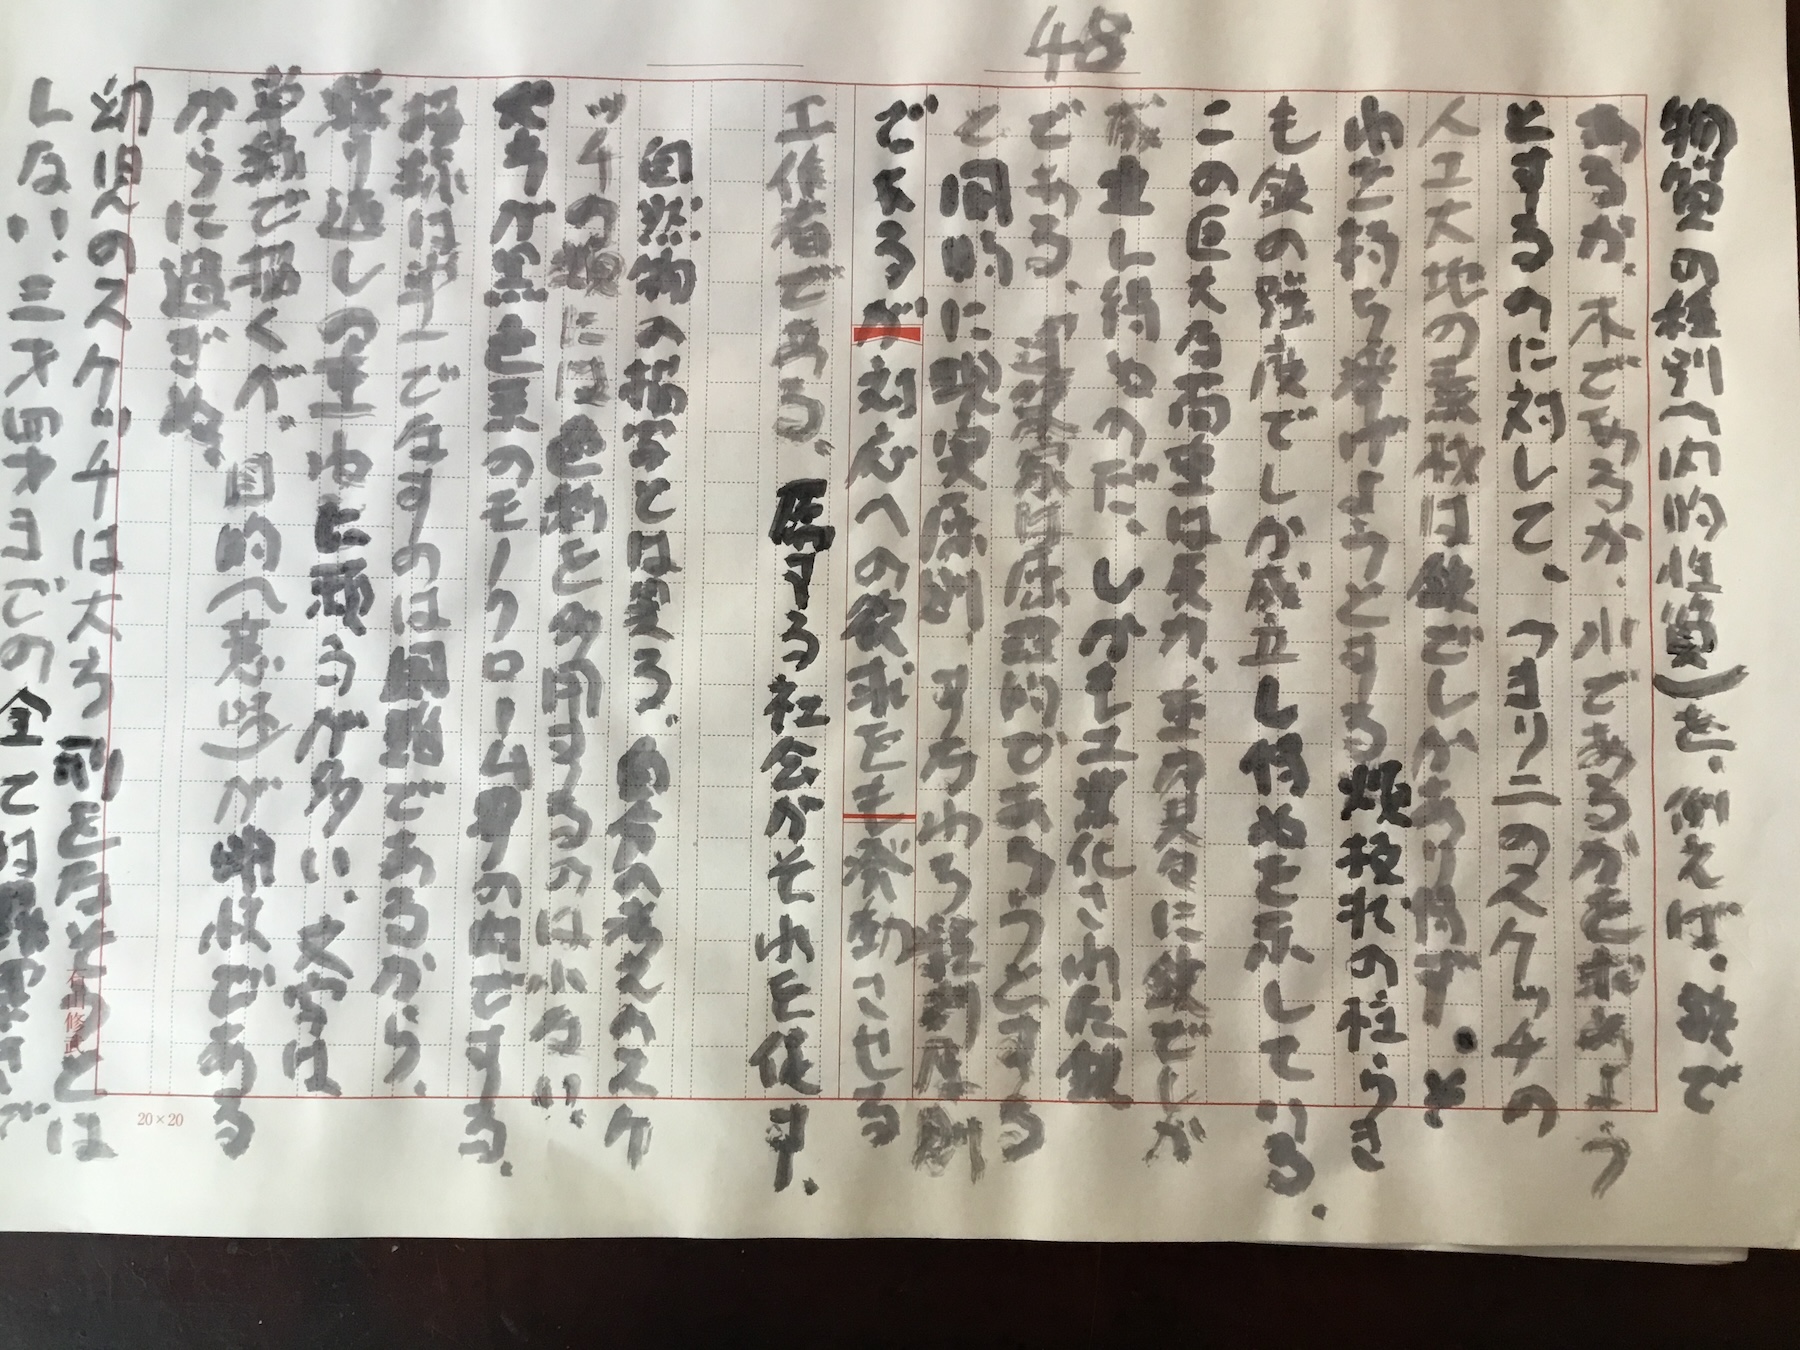 48
物質の種別(内的性質)を、例えば、鉄で
あるが、木であろうか、水であるがを求めよう
とするのに対して、つまり二のスケッチの
人工大地の素材は鉄でしかあり得ず、そ
れを持ち挙げようとする 板状の柱らき
も鉄の強度でしか成立し得ぬを示している.
この巨大な両重は 力、重力 々に鉄でしか
成立し得ぬのだ、しかも工業化された鉄
である、建築家は原理的であろうとする
と同時に現実原則 すなわち経済原則
でよるが対応への欲求をも発動させる
工作者である、属する社会がそれを促す.
自然物の描写とは異る、自分の考えのスケ
ッチの類には色彩を 用するのは少ない
大方が黒色系のモノクローム の内でする.
描線は単一でなすのは困難であるから、
繰り返しの重 ねに頼うが多い、文字は
単線で描くが、目的(意味)が明快である
からに過ぎぬ
幼児のスケッチは大方形をなそうとは
しない、三才四才までの全ては
石山修武
20×20